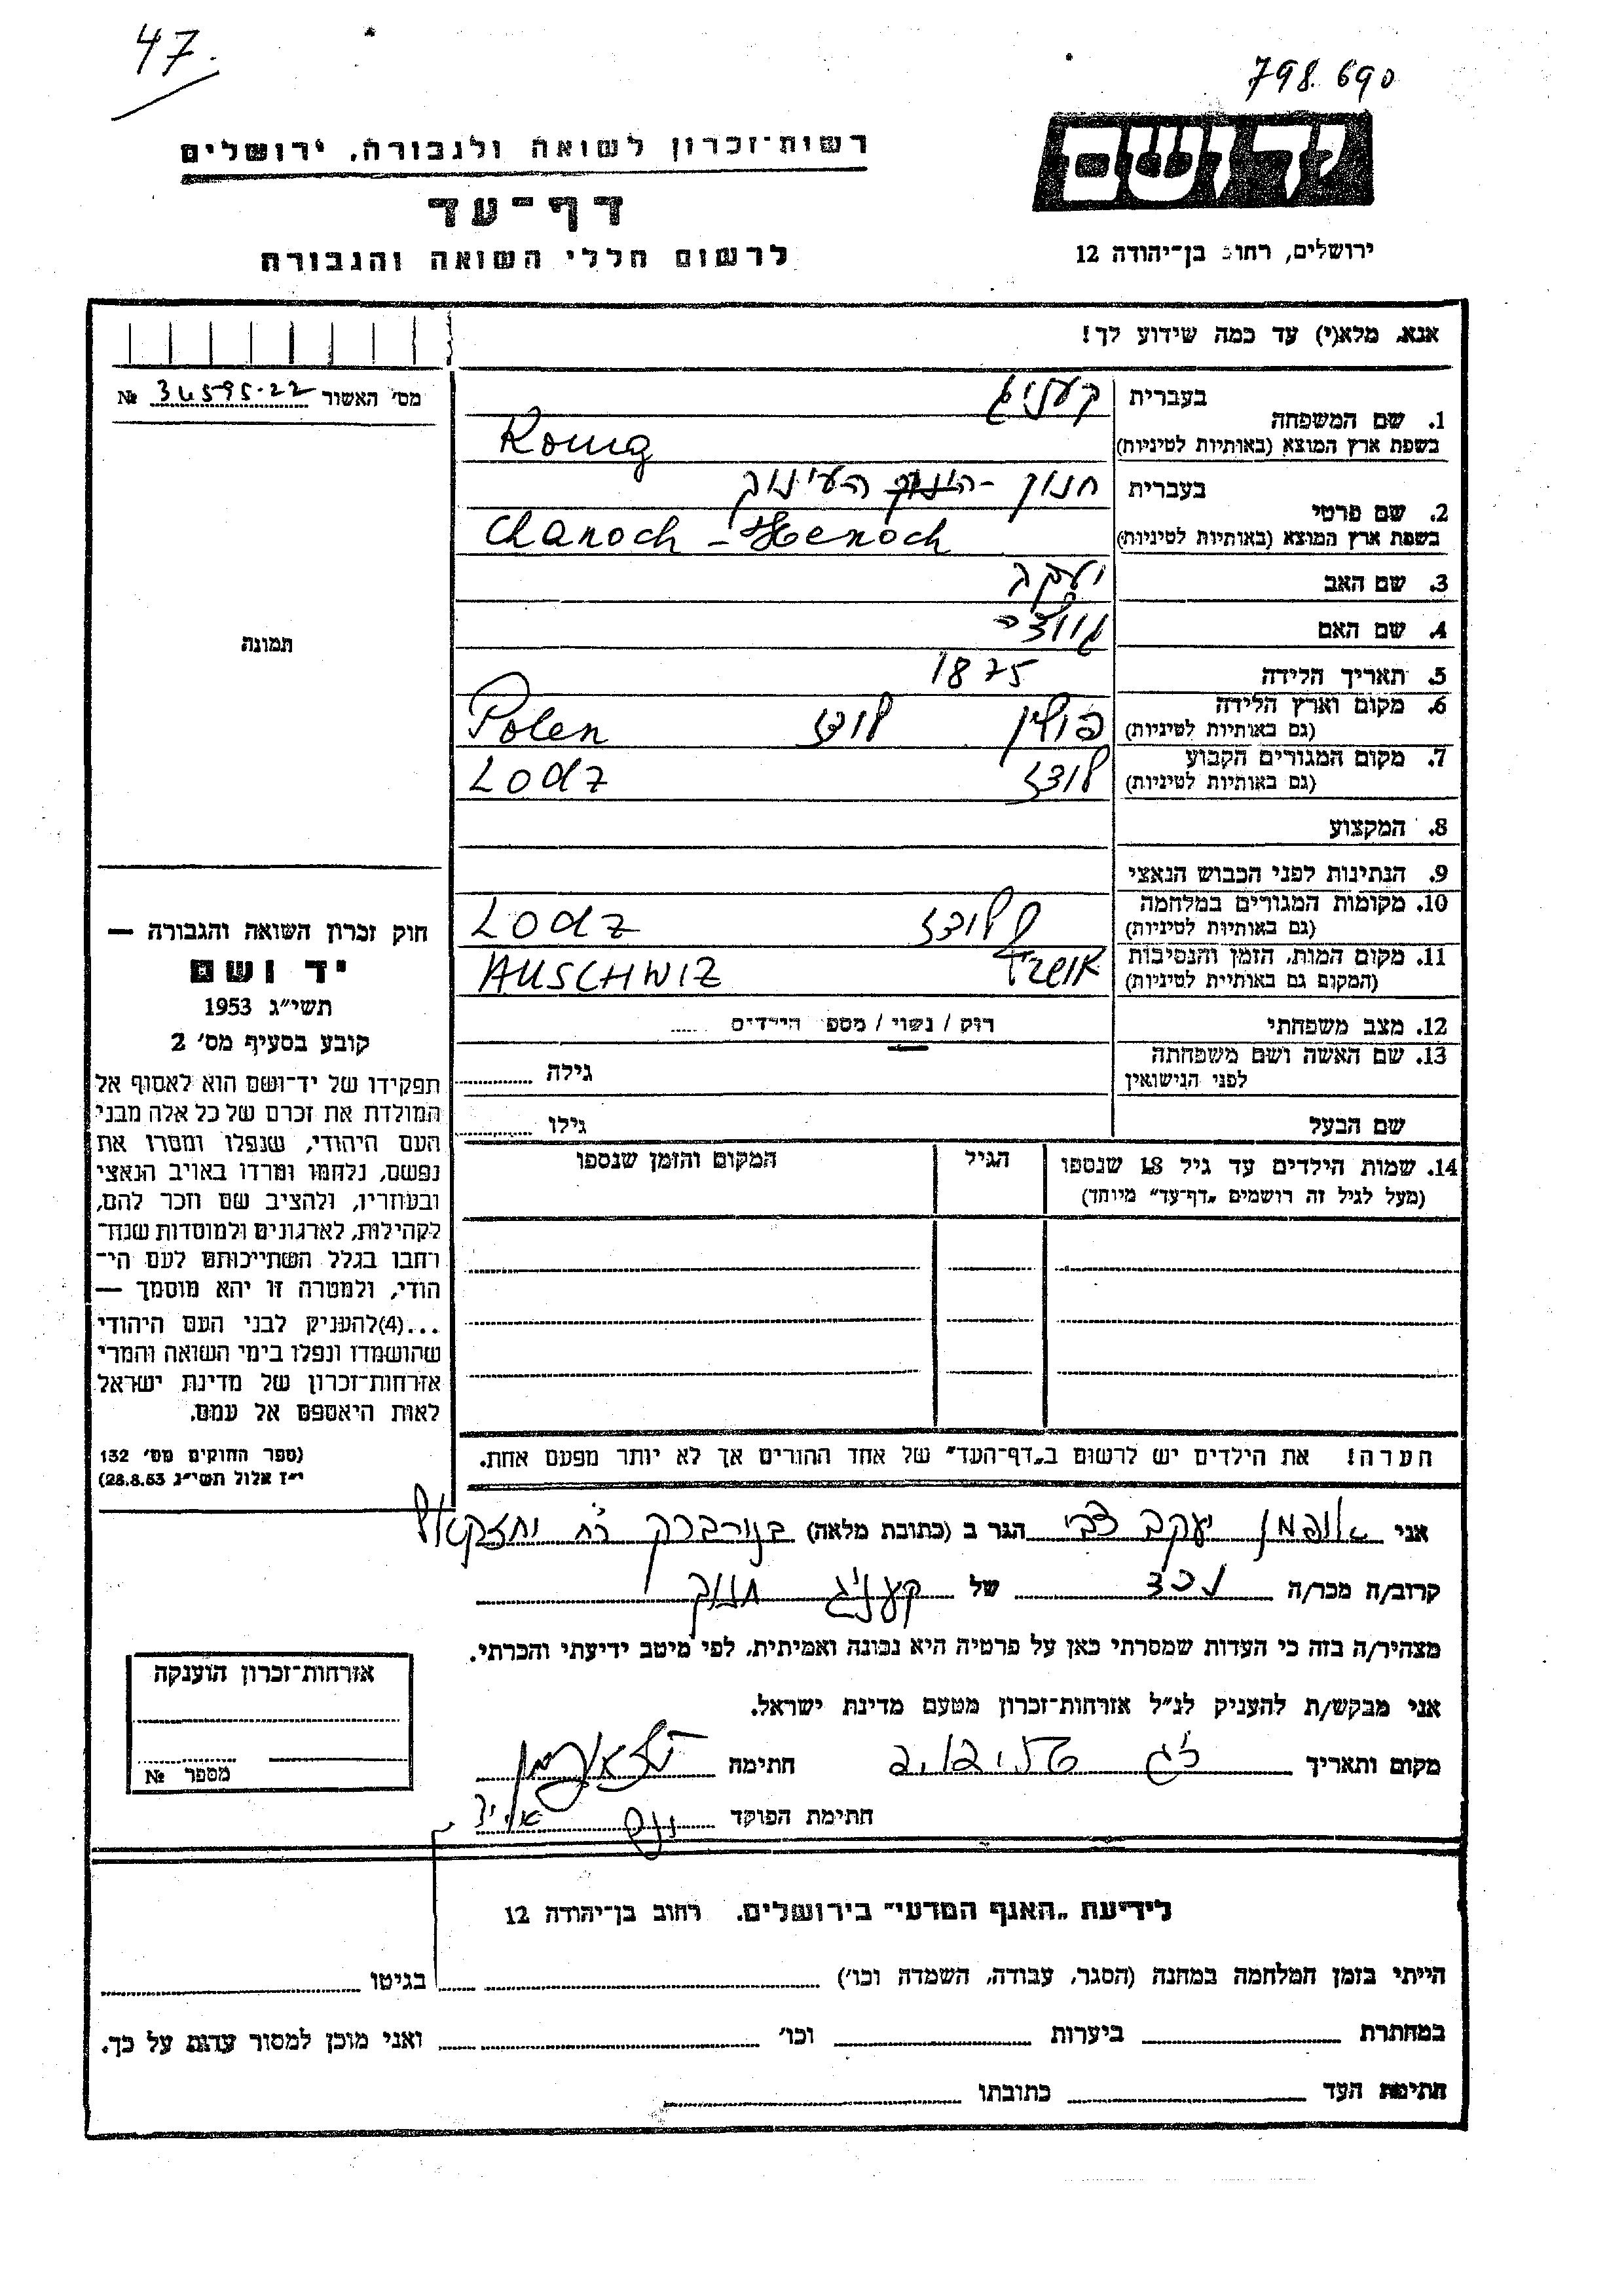 47.
798.690
יד ושם
רשות־זכרון לשואה ולגבורה, ירושלים
דף־עד
לרשום חללי השואה והגבורה
ירושלים, רחוב בן־יהודה 12
אנא, מלא(י) עד כמה שידוע לך!
מס׳ האשור № 34595.22
1. שם המשפחה
בעברית קעניג
בשפת ארץ המוצא (באותיות לטיניות) Konig
2. שם פרטי
בעברית חנוך - העינוך
בשפת ארץ המוצא (באותיות לטיניות) Chanoch - Henoch
3. שם האב יעקב
4. שם האם
5. תאריך הלידה 1875
6. מקום וארץ הלידה
(גם באותיות לטיניות) פולין לודז Polen
7. מקום המגורים הקבוע
(גם באותיות לטיניות) לודז Lodz
8. המקצוע
9. הנתינות לפני הכבוש הנאצי
10. מקומות המגורים במלחמה
(גם באותיות לטיניות) לודז Lodz
11. מקום המות, הזמן והנסיבות
(המקום גם באותיות לטיניות) AUSCHWIZ
12. מצב משפחתי רוק / נשוי / מספר הילדים .....
13. שם האשה ושם משפחתה
לפני הנישואין גילה
שם הבעל גילו
14. שמות הילדים עד גיל 18 שנספו
(מעל לגיל זה רושמים „דף־עד” מיוחד)
הגיל
המקום והזמן שנספו
הערה! את הילדים יש לרשום ב„דף־העד” של אחד ההורים אך לא יותר מפעם אחת.
תמונה
חוק זכרון השואה והגבורה —
יד ושם
תשי״ג 1953
קובע בסעיף מס׳ 2
תפקידו של יד־ושם הוא לאסוף אל
המולדת את זכרם של כל אלה מבני
העם היהודי, שנפלו ומסרו את
נפשם, נלחמו ומרדו באויב הנאצי
ובעוזריו, ולהציב שם וזכר להם,
לקהילות, לארגונים ולמוסדות שנח־
רחבו בגלל השתייכותם לעם הי־
הודי, ולמטרה זו יהא מוסמך —
...(4)להעניק לבני העם היהודי
שהושמדו ונפלו בימי השואה והמרי
אזרחות־זכרון של מדינת ישראל
לאות היאספם אל עמם.
(ספר החוקים מס׳ 132
י״ז אלול תשי״ג 28.8.53)
אני אופמן יעקב צבי הגר ב (כתובת מלאה) בני ברק רח יחזקאל
קרוב/ה מכר/ה נכד של קעניג חנוך
מצהיר/ה בזה כי העדות שמסרתי כאן על פרטיה היא נכונה ואמיתית, לפי מיטב ידיעתי והכרתי.
אני מבקש/ת להעניק לנ״ל אזרחות־זכרון מטעם מדינת ישראל.
מקום ותאריך חתימה
חתימת הפוקד
אזרחות־זכרון הוענקה
מספר №
לידיעת „האגף המדעי” בירושלים, רחוב בן־יהודה 12
הייתי בזמן המלחמה במחנה (הסגר, עבודה, השמדה וכו׳) בגיטו
במחתרת ביערות וכו׳ ואני מוכן למסור עדות על כך.
חתימת העד כתובתו